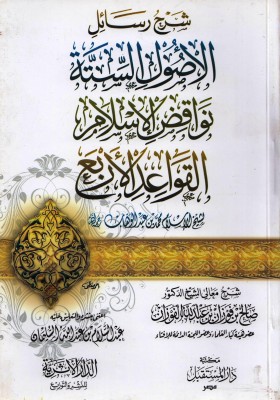 شرح رسائل
الأصول الستة
نواقض الإسلام
القواعد الأربع
لشيخ الإسلام محمد بن عبد الوهاب رحمه الله
شرح معالي الشيخ الدكتور
صالح بن فوزان بن عبد الله الفوزان
عضو هيئة كبار العلماء وعضو اللجنة الدائمة للإفتاء
عبد السلام بن عبد الله السليمان
الدار الأثرية
للنشر والتوزيع
مكتبة
دار المستقبل
مصر